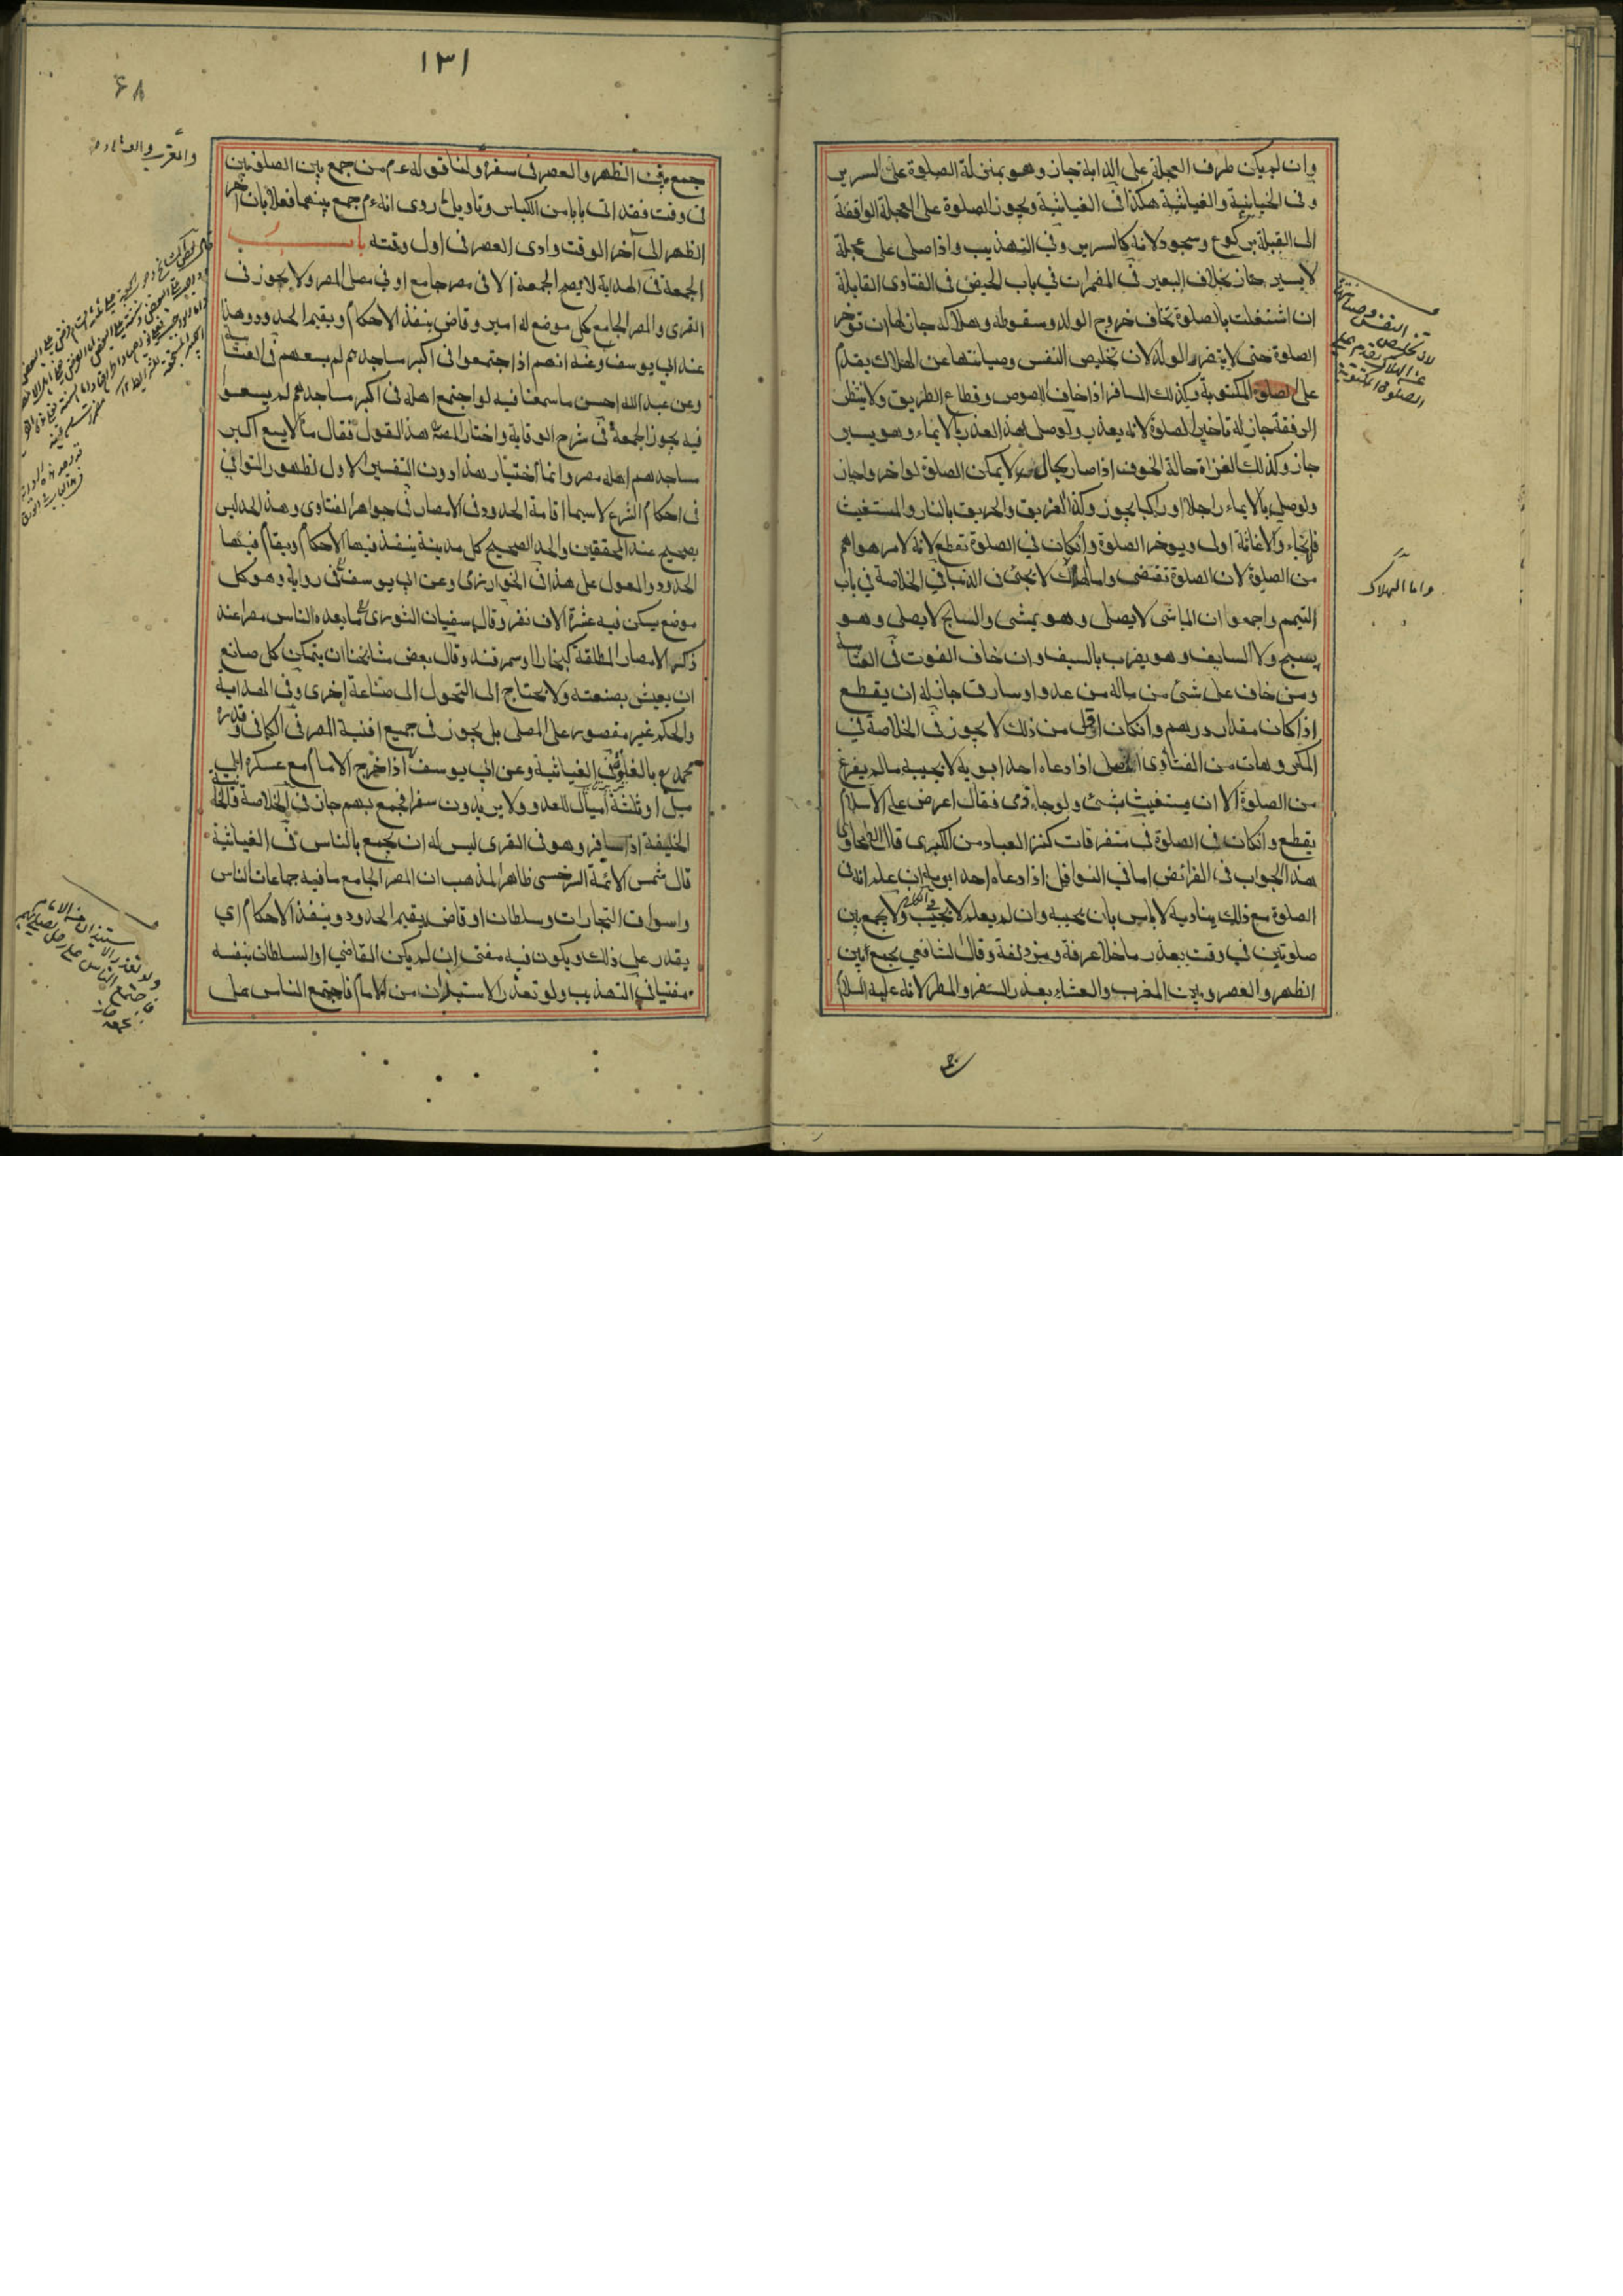 وان لم يكن طرف العجلة على الدابة جاز وهو بمنزلة الصلوة على السرير
وفى الخانية والغياثية هكذا فى الغياثية ويجوز الصلوة على العجلة الواقفة
الى القبلة بركوع وسجود لانه كالسرير وفي التهذيب واذا صلى على عجلة
لا يسير جاز بخلاف البعير في المضمرات في باب الحيض فى الفتاوى القابلة
ان اشتغلت بالصلوة تخاف خروج الولد وسقوطه وهلاكه جاز لها ان تؤخر
الصلوة حتى لا يتضرر الولد لان تخليص النفس وصيانتها عن الهلاك يقدم
على الصلوة المكتوبة وكذلك المسافر اذا خاف اللصوص وقطاع الطريق ولا ينتظر
الرفقة جاز له تاخير الصلوة لانه يعذر ولو صلى بهذا العذر بالايماء وهو يسير
جاز وكذلك الغزاة حالة الخوف اذا صار بحال لا يمكن الصلوة لو اخر واجاز
ولو صلى بالايماء راجلا او راكبا يجوز وكذا الغريق والحريق بالنار والمستغيث
والاغاثة اولى ويوخر الصلوة وان كان في الصلوة تقطع لانه لامر هو اهم
من الصلوة لان الصلوة تقتضى واما الهلاك لا يجئ فى الدنيا في الخلاصة في باب
التيمم واجمعوا ان الماشى لا يصلى وهو يمشى والسابح لا يصلى وهو
يسبح ولا السايف وهو يضرب بالسيف وان خاف الفوت في العتابية
ومن خاف على شئ من ماله من عدو او سارق جاز له ان يقطع
اذا كان مقدار درهم وان كان اقل من ذلك لا يجوز فى الخلاصة في
المكروهات من الفتاوى المصلى اذا دعاه احد ابويه لا يجيبه مالم يفرغ
من الصلوة الا ان يستغيث بشئ ولو جاء ذمى فقال اعرض على الاسلام
يقطع وان كان فى الصلوة في متفرقات كنز العباد من الكبرى قال الطحاوى
هذا الجواب فى الفرائض اما في النوافل اذا دعاه احد ابويه ان علم انه فى
الصلوة مع ذلك يناديه لا باس بان يجيبه وان لم يعلم لا يجيب ولا يجمع بين
صلوتين في وقت بعذر ما خلا عرفة ومزدلفة وقال الشافعي يجمع بين
الظهر والعصر وبين المغرب والعشاء بعذر السفر والمطر لانه عليه السلام
لان تخليص النفس وصيانتها
عن الهلاك يقدم على
الصلوة المكتوبة
واما الهلاك
١٣١
۶۸
جمع بين الظهر والعصر فى سفر ولنا قوله عم من جمع بين الصلوتين
فى وقت فقد اتى بابا من الكبائر وتاويل ما روى انه عم جمع بينهما فعلا بان اخر
الظهر الى آخر الوقت وادى العصر فى اول وقته باب
الجمعة فى الهداية لا يصح الجمعة الا فى مصر جامع او في مصلى المصر ولا يجوز فى
القرى والمصر الجامع كل موضع له امير وقاض ينفذ الاحكام ويقيم الحدود وهذا
عند ابي يوسف وعنه انهم اذا اجتمعوا فى اكبر مساجدهم لم يسعهم فى العتابية
وعن عبد الله احسن ما سمعنا فيه لو اجتمع اهله فى اكبر مساجدهم لم يسعوا
فيه يجوز الجمعة فى شرح الوقاية واختار المص هذا القول فقال ما لا يسع اكبر
مساجدهم اهله مصر وانما اختيار هذا دون التفسير الاول لظهور التواني
فى احكام الشرع لا سيما اقامة الحدود فى الامصار فى جواهر الفتاوى وهذا الحد ليس
بصحيح عند المحققين والحد الصحيح كل مدينة ينفذ فيها الاحكام ويقام فيها
الحدود والمعول على هذا فى الخوارزمى وعن ابي يوسف فى رواية وهو كل
موضع يسكن فيه عشرة الاف نفر وقال سفيان الثورى ما يعده الناس مصرا عند
ذكر الامصار المطلقة كبخارا وسمرقند وقال بعض مشايخنا ان يتمكن كل صانع
ان يعيش بصنعته ولا يحتاج الى التحول الى صناعة اخرى وفى الهداية
والحكم غير مقصور على المصلى بل يجوز فى جميع افنية المصر فى الكافى وقدره
محمد بالغلوة فى الغياثية وعن ابي يوسف اذا خرج الامام مع عسكره الى
ميل او ثلثة اميال للعدو ولا يريدون سفرا فجمع بهم جاز فى الخلاصة
الخليفة اذا سافر وهو فى القرى ليس له ان يجمع بالناس فى الغياثية
قال شمس الائمة السرخسى ظاهر المذهب ان المصر الجامع ما فيه جماعات الناس
واسواق التجارات وسلطان او قاض يقيم الحدود وينفذ الاحكام اي
يقدر على ذلك ويكون فيه مفتى ان لم يكن القاضي او السلطان بنفسه
مفتيا فى التهذيب ولو تعذر الاستيذان من الامام فاجتمع الناس على
ولو تعذر الاستيذان من الامام
فاجتمع الناس على رجل يصلى بهم
جاز